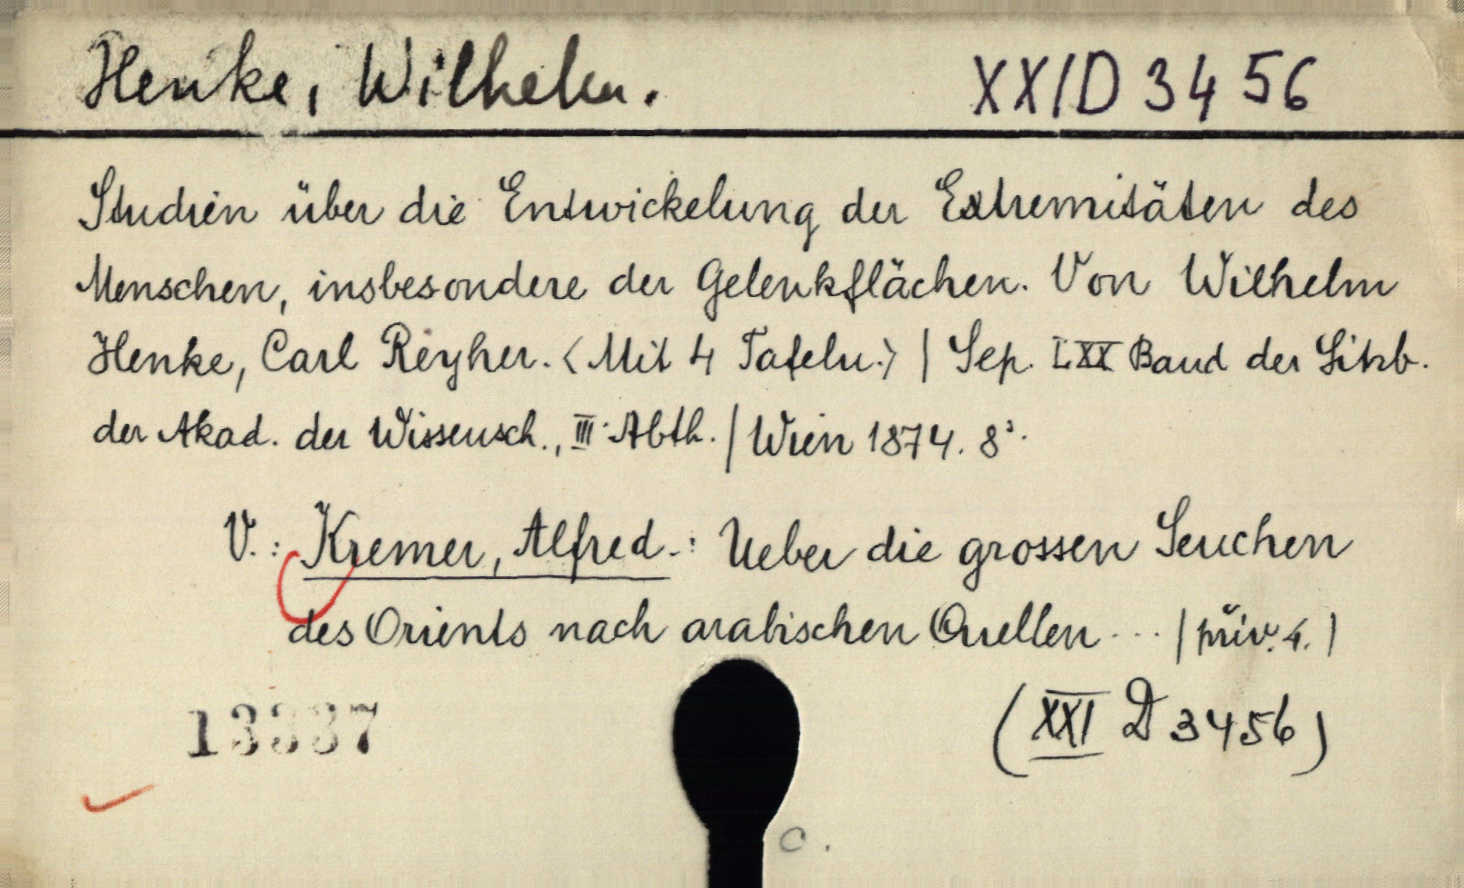 Henke, Wilhelm. XXI D 3456
Studien über die Entwickelung der Extremitäten des
Menschen, insbesondere der Gelenkflächen. Von Wilhelm
Henke, Carl Reyher. <Mit 4 Tafeln.> | Sep. LXX Band der Sitzb.
der Akad. der Wissensch., III. Abth. | Wien 1874. 8°.
V.: Kremer, Alfred.: Ueber die grossen Seuchen
des Orients nach arabischen Quellen ... | přív. 4. |
13337 (XXI D 3456)
c.